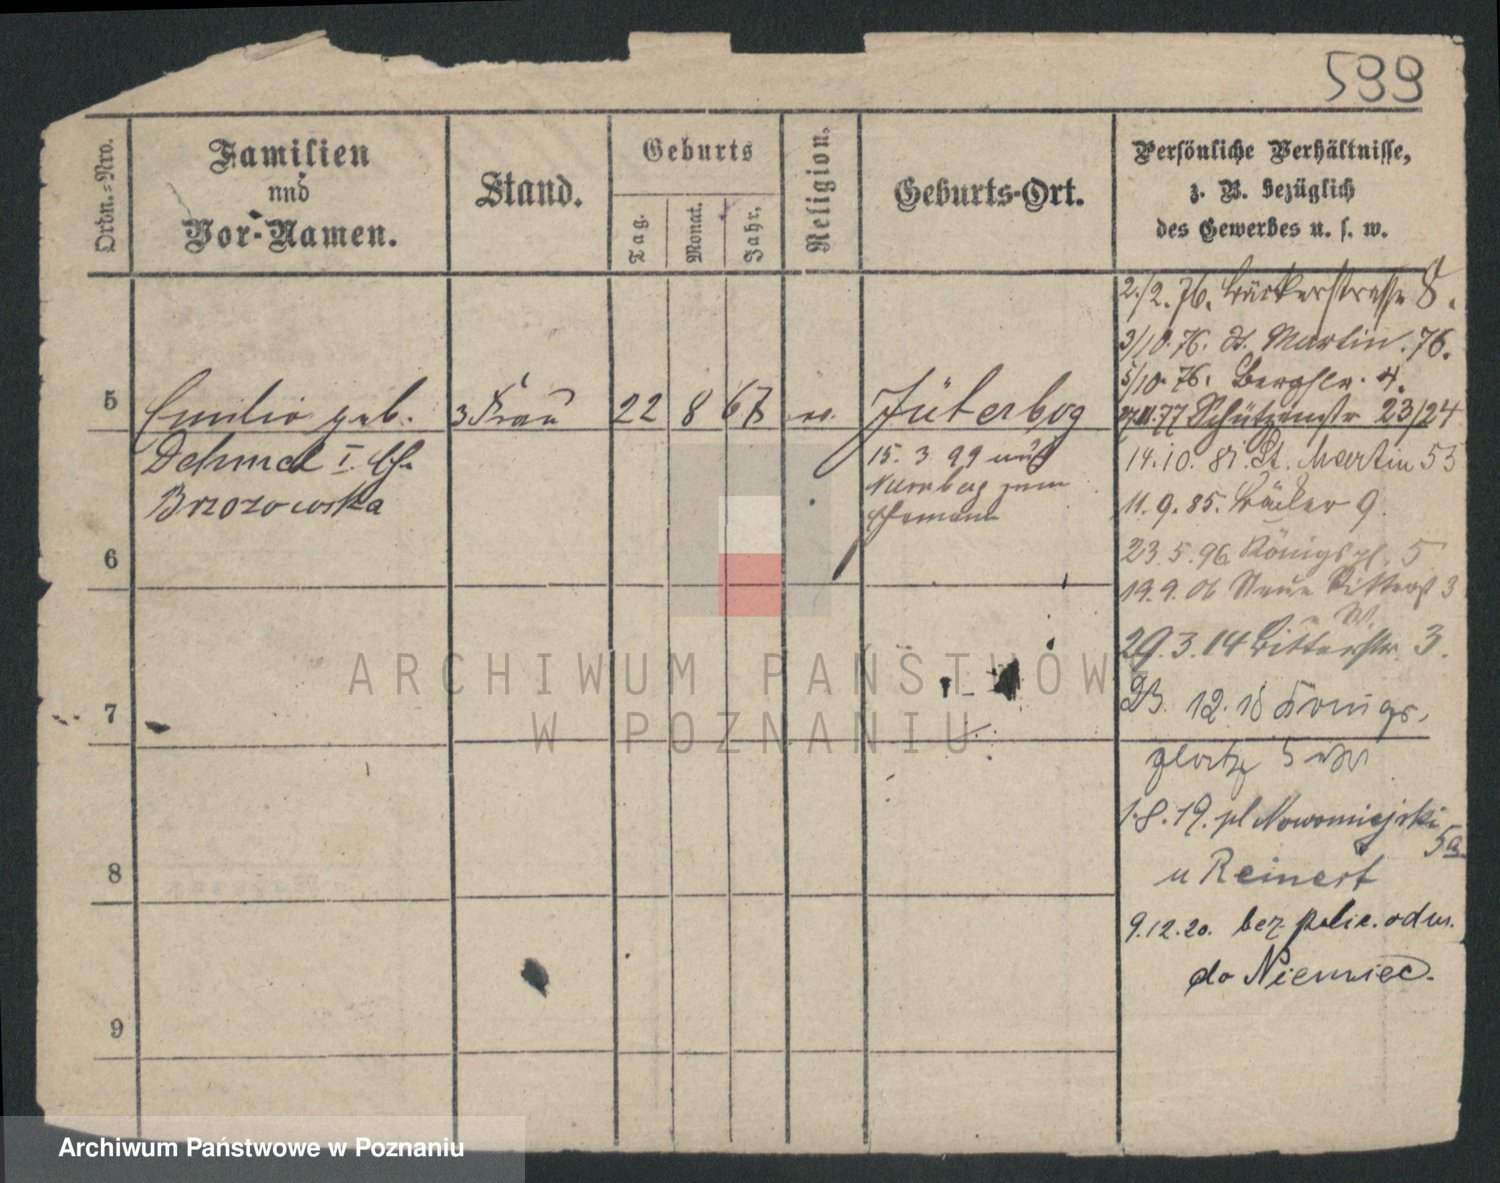 599
Ordn.=Nro.
Familien
und
Vor-Namen.
Stand.
Geburts
Tag.
Monat.
Jahr.
Religion.
Geburts-Ort.
Persönliche Verhältnisse,
z. B. bezüglich
des Gewerbes u. s. w.
2./2. 76. Bäckerstrasse 8.
3/10. 76. St. Martin. 76.
5/10. 76. Bergstr. 4.
5
Emilie geb.
3. Frau
22
8
67
ev.
Jüterbog
77 Schützenstr 23/24
Dehmel I. Eh.
Brzozowska
15. 3 99 aus
Nürnberg zum
Ehemann
14. 10. 81. St. Martin 53
11. 9. 85. Bäcker 9.
6
23. 5. 96 Königspl. 5
19. 9. 06 Neue Ritterst 3
W.
29. 3. 14 Ritterstr. 3.
7
23. 12. 18 Königs-
platz 5
1. 8. 19. pl Nowomiejski
5a
8
u Reinert
9. 12. 20. bez polic. odm.
do Niemiec.
9
ARCHIWUM PAŃSTWOWE
W POZNANIU
Archiwum Państwowe w Poznaniu